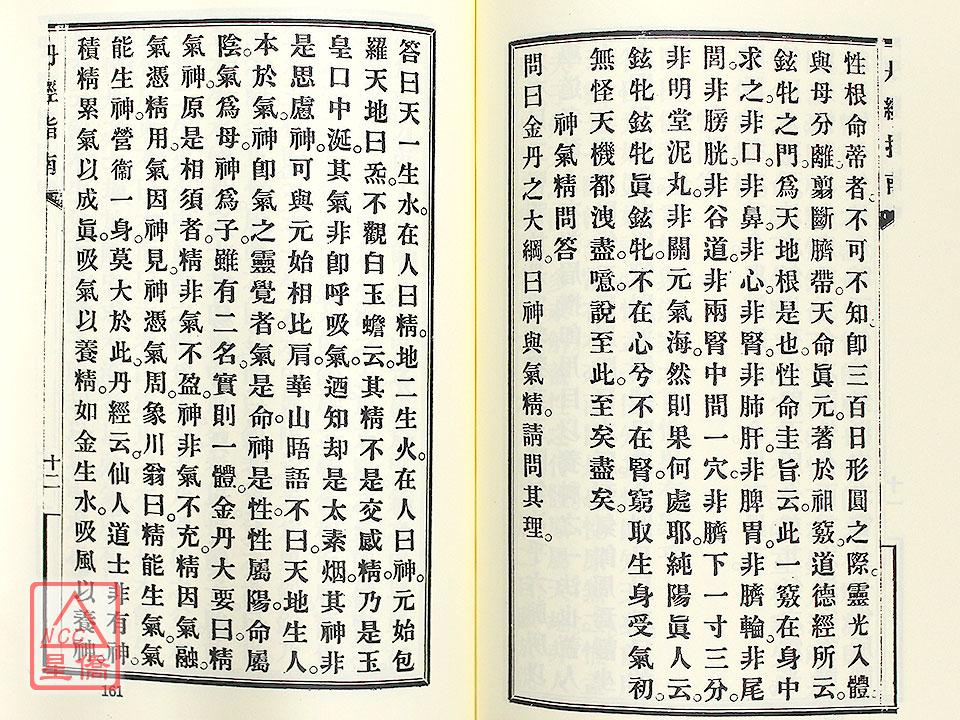 性根命蒂者。不可不知。卽三百日形圓之際。靈光入體。
與母分離。翦斷臍帶。天命眞元。著於祖竅。道德經所云。
鉉牝之門。爲天地根是也。性命圭旨云。此一竅在身中
求之。非口。非鼻。非心。非腎。非肺。非肝。非脾胃。非臍輪。非尾
閭。非膀胱。非谷道。非兩腎中間一穴。非臍下一寸三分。
非明堂泥丸。非關元氣海。然則果何處耶。純陽眞人云。
鉉牝鉉牝眞鉉牝。不在心兮不在腎。窮取生身受氣初。
無怪天機都洩盡。噫。說至此。至矣盡矣。
神氣精問答
問曰金丹之大綱。曰神與氣精。請問其理。
答曰天一生水。在人曰精。地二生火。在人曰神。元始包
羅天地曰炁。不觀白玉蟾云。其精不是交感精。乃是玉
皇口中涎。其氣非卽呼吸氣。迺知却是太素烟。其神非
是思慮神。可與元始相比肩。華山晤語不曰。天地生人。
本於氣。神卽氣之靈覺者。氣是命。神是性。性屬陽。命屬
陰。氣爲母。神爲子。雖有二名。實則一體。金丹大要曰。精
氣神。原是相須者。精非氣不盈。神非氣不充。精因氣融。
氣憑精用。氣因神見。神憑氣周。象川翁曰。精能生氣。氣
能生神。營衞一身。莫大於此。丹經云。仙人道士非有神。
積精累氣以成眞。吸氣以養精。如金生水。吸風以養神。
十二
161
NCC
星僑